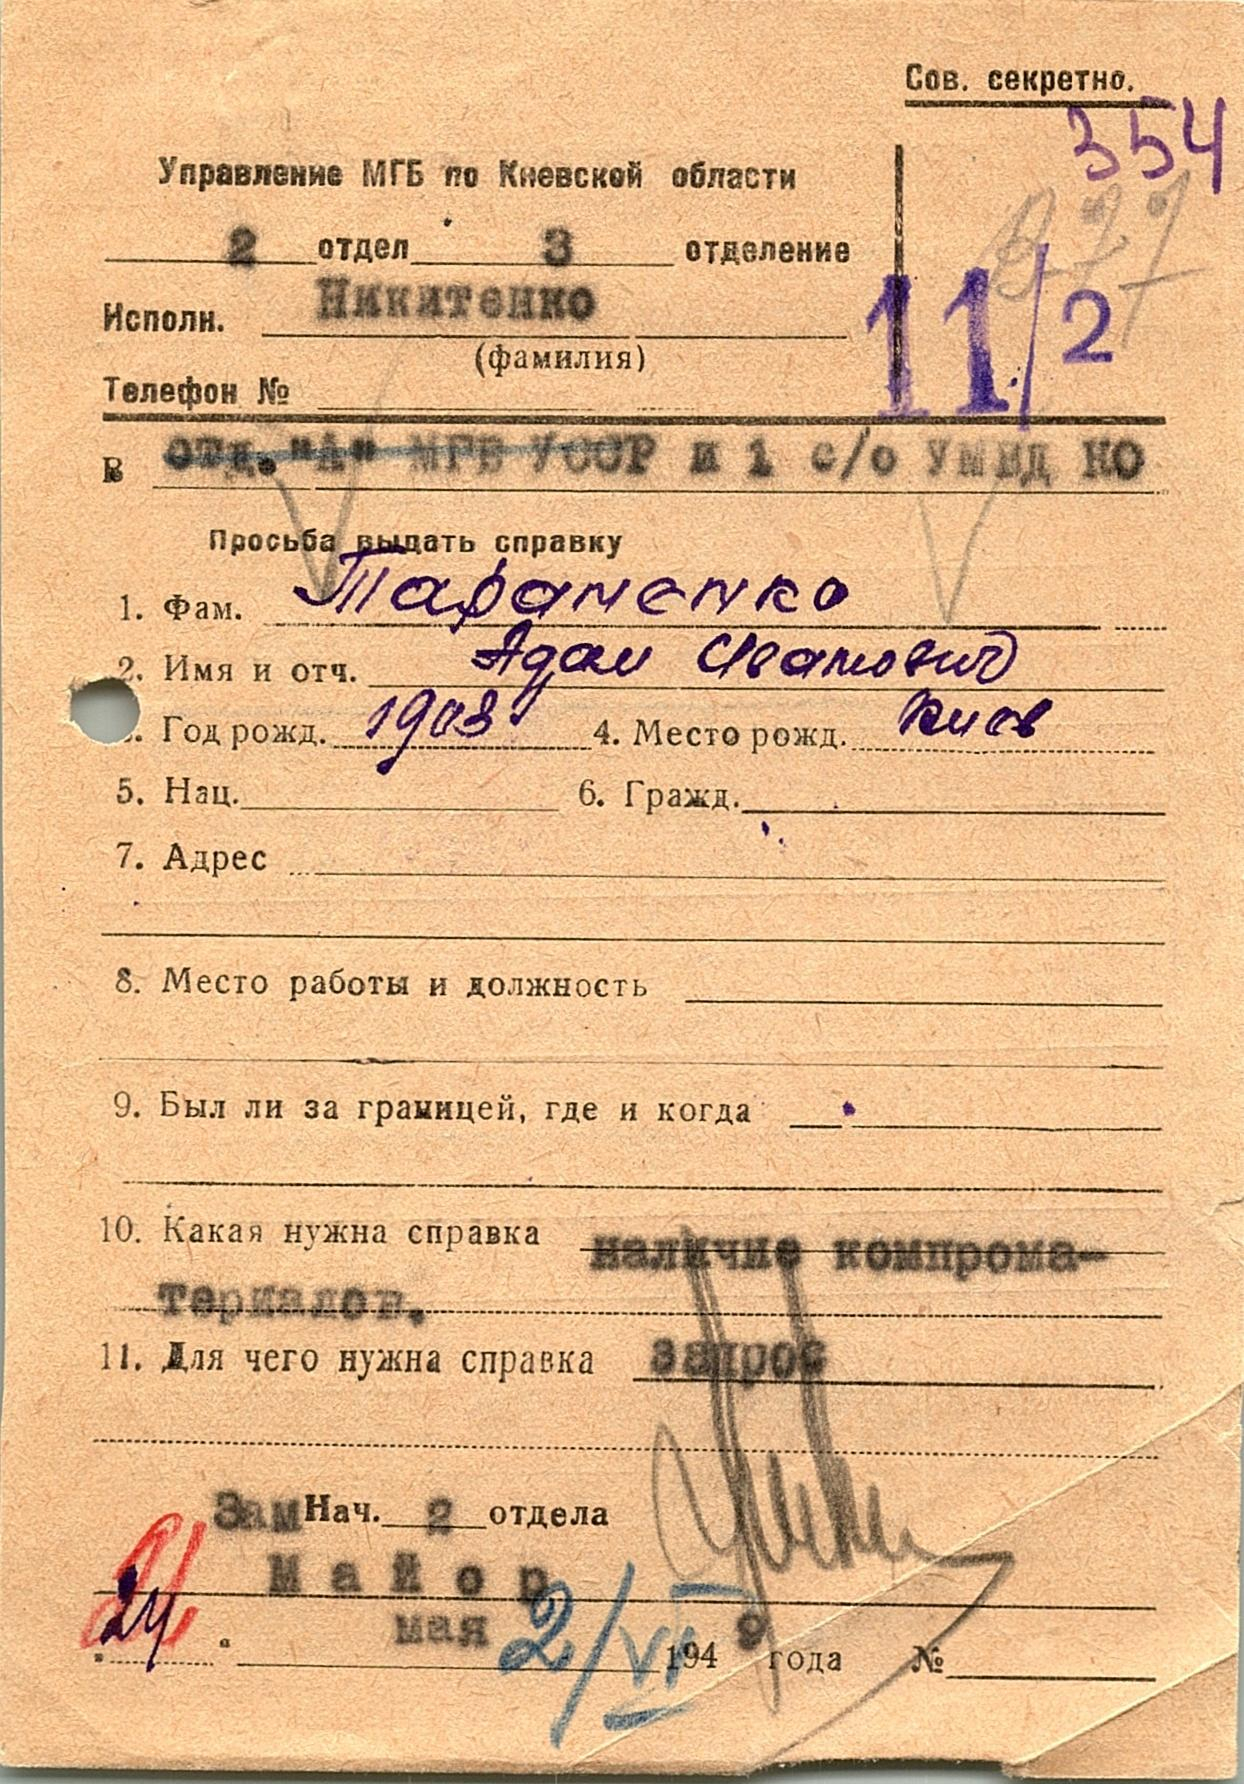 Сов. секретно.
354
Управление МГБ по Киевской области
2 отдел 3 отделение
Исполн. Никитенко
(фамилия)
11/2
Телефон №
В отд. "А" МГБ УССР и 1 с/о УМВД КО
Просьба выдать справку
1. Фам. Тараненко
2. Имя и отч. Адам Иванович
Год рожд. 1903 4. Место рожд. Киев
5. Нац. 6. Гражд.
7. Адрес
8. Место работы и должность
9. Был ли за границей, где и когда
10. Какая нужна справка наличие компрома-
териалов.
11. Для чего нужна справка запрос
Зам Нач. 2 отдела
Майор
"24" мая 1949 года №
2/VI